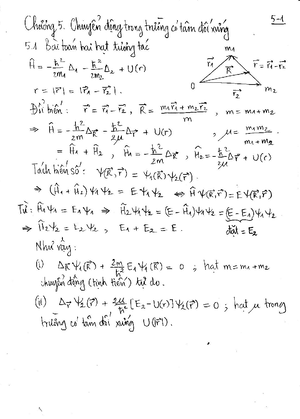 5-1
Chương 5. Chuyển động trong trường có tâm đối xứng
5.1 Bài toán hai hạt tương tác
Ĥ = -ħ²/2m₁ Δ₁ - ħ²/2m₂ Δ₂ + U(r)
r = |r⃗| = |r⃗₁ - r⃗₂|.
m₁ r⃗₁ R⃗ r⃗ = r⃗₁ - r⃗₂ 0 r⃗₂ m₂
Đổi biến: r⃗ = r⃗₁ - r⃗₂, R⃗ = (m₁r⃗₁ + m₂r⃗₂)/m, m = m₁ + m₂
⇒ Ĥ = -ħ²/2m Δ_R⃗ - ħ²/2μ Δ_r⃗ + U(r), μ = m₁m₂/(m₁ + m₂)
= Ĥ₁ + Ĥ₂, Ĥ₁ = -ħ²/2m Δ_R⃗, Ĥ₂ = -ħ²/2μ Δ_r⃗ + U(r)
Tách biến số: Ψ(R⃗, r⃗) = Ψ₁(R⃗)Ψ₂(r⃗).
⇒ (Ĥ₁ + Ĥ₂) Ψ₁Ψ₂ = E Ψ₁Ψ₂ ⇔ ĤΨ(R⃗,r⃗) = EΨ(R⃗,r⃗)
Từ: Ĥ₁Ψ₁ = E₁Ψ₁ ⇒ Ĥ₂Ψ₁Ψ₂ = (E - Ĥ₁)Ψ₁Ψ₂ = (E - E₁)Ψ₁Ψ₂
⇒ Ĥ₂Ψ₂ = E₂Ψ₂, E₁ + E₂ = E. đặt = E₂
Như vậy:
(i) Δ_R⃗ Ψ₁(R⃗) + 2m/ħ² E₁Ψ₁(R⃗) = 0; hạt m = m₁ + m₂
chuyển động (tịnh tiến) tự do.
(ii) Δ_r⃗ Ψ₂(r⃗) + 2μ/ħ² [E₂ - U(r)] Ψ₂(r⃗) = 0; hạt μ trong
trường có tâm đối xứng U(|r⃗|).